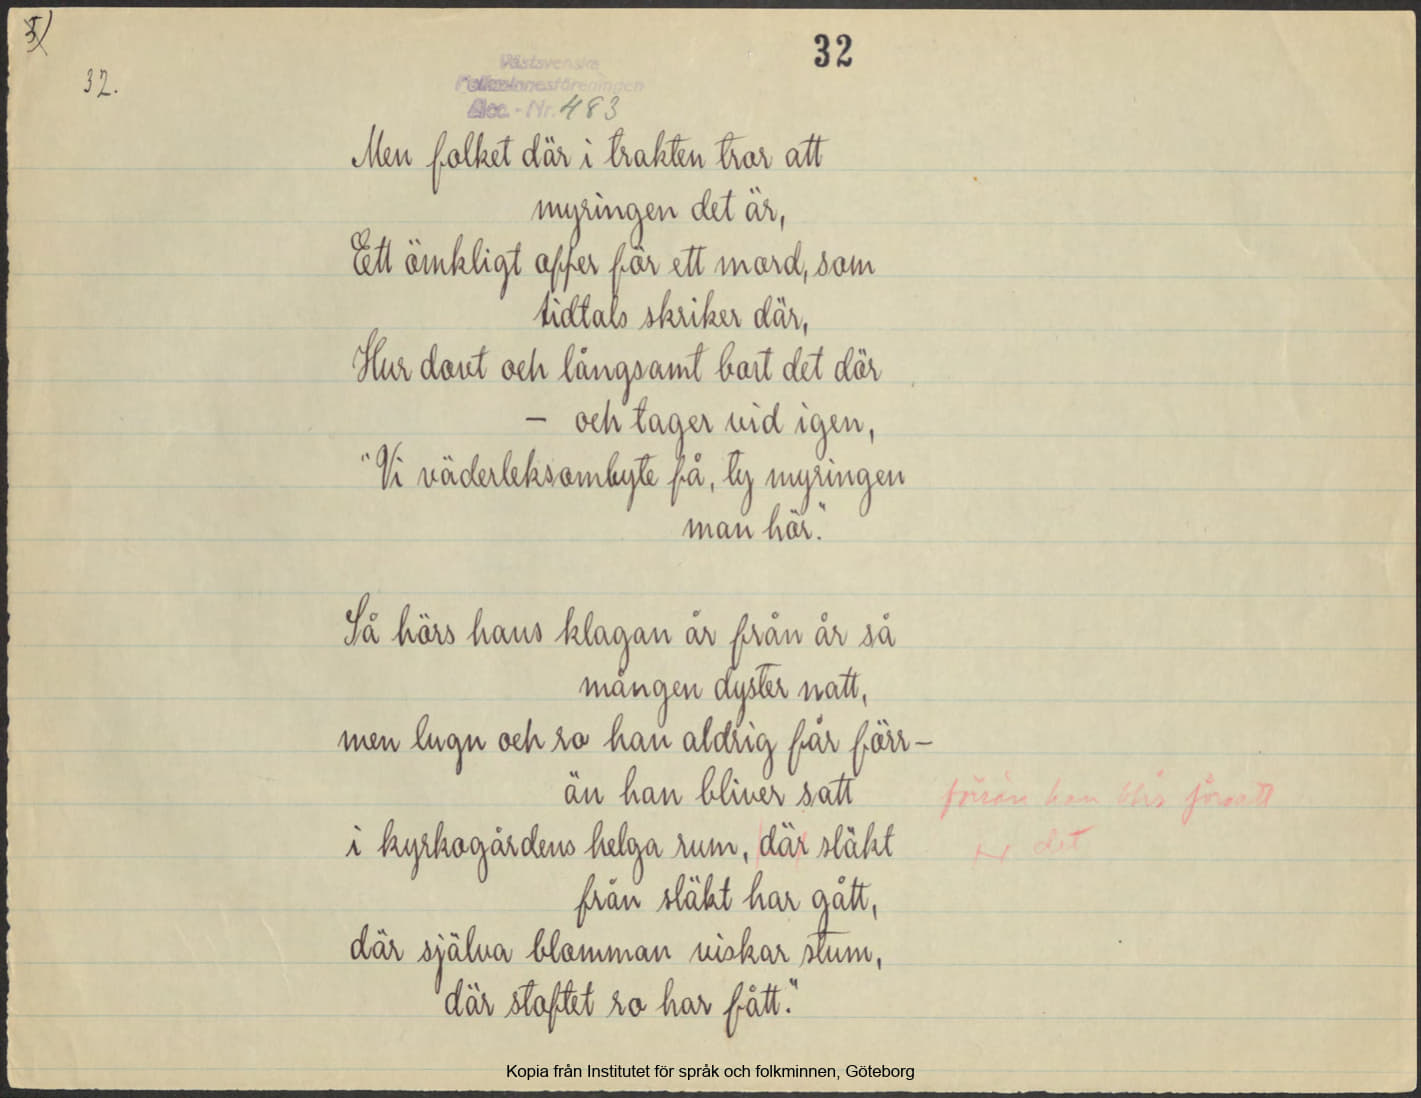 5)
32
32.
Västsvenska
Folkminnesföreningen
Acc. - Nr. 483
Men folket där i trakten tror att
myringen det är,
Ett ömkligt offer för ett mord, som
tidtals skriker där,
Hur dovt och långsamt bort det dör
– och tager vid igen,
"Vi väderleksombyte få, ty myringen
man hör."
Så hörs hans klagan år från år så
mången dyster natt,
men lugn och ro han aldrig får förr–
än han bliver satt
förrän han blir försatt
i kyrkogårdens helga rum, där släkt
det
från släkt har gått,
där själva blomman viskar stum,
där stoftet ro har fått."
Kopia från Institutet för språk och folkminnen, Göteborg